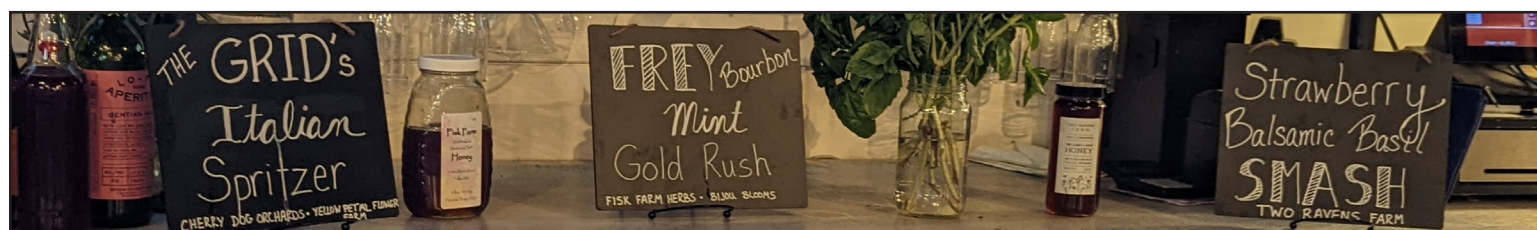 LO-F
APERIT
GENTIAN
THE GRID's
Italian
Spritzer
CHERRY DOG ORCHARDS • YELLOW PETAL FLOWER
FARM
Fisk Farm
Honey
FREY Bourbon
Mint
Gold Rush
FISK FARM HERBS • BIJOU BLOOMS
HONEY
Strawberry
Balsamic Basil
SMASH
TWO RAVENS FARM